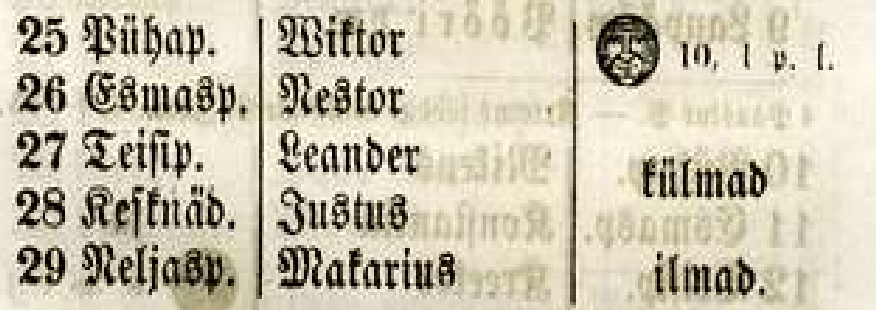 25 Pühap. Wiktor 10, 1 p. l.
26 Esmasp. Nestor
27 Teisip. Leander külmad
28 Kesknäd. Justus
29 Neljasp. Makarius ilmad.